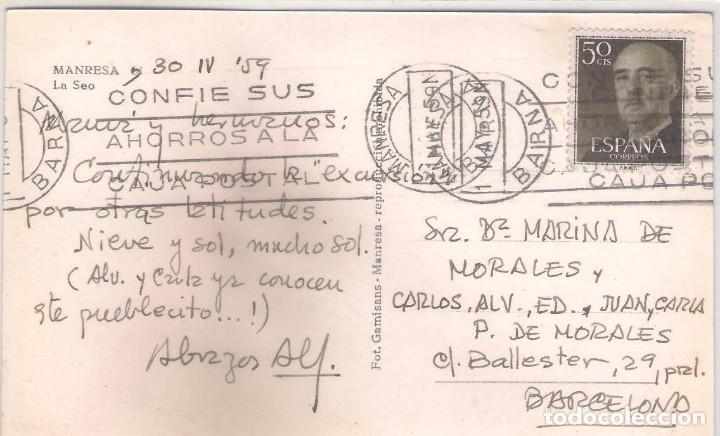 MANRESA, 30 IV '59
La Seo
CONFIE SUS
AHORROS A LA
CAJA POSTAL
Mamá y hermanos:
Continuando la "excursión"
por otras latitudes.
Nieve y sol, mucho sol.
(Alv. y Carla ya conocen
este pueblecito...!)
Abrazos Alf.
Fot. Gamisans - Manresa - reproducción prohibida
MANRESA
1 MAR 59
BAIRNA
50 CTS
ESPAÑA
CORREOS
CAJA PO
Srz. Dª MARINA DE
MORALES y
CARLOS, ALV., ED., JUAN, CARLA
P. DE MORALES
c/. Ballester, 29, pral.
BARCELONA
todocoleccion